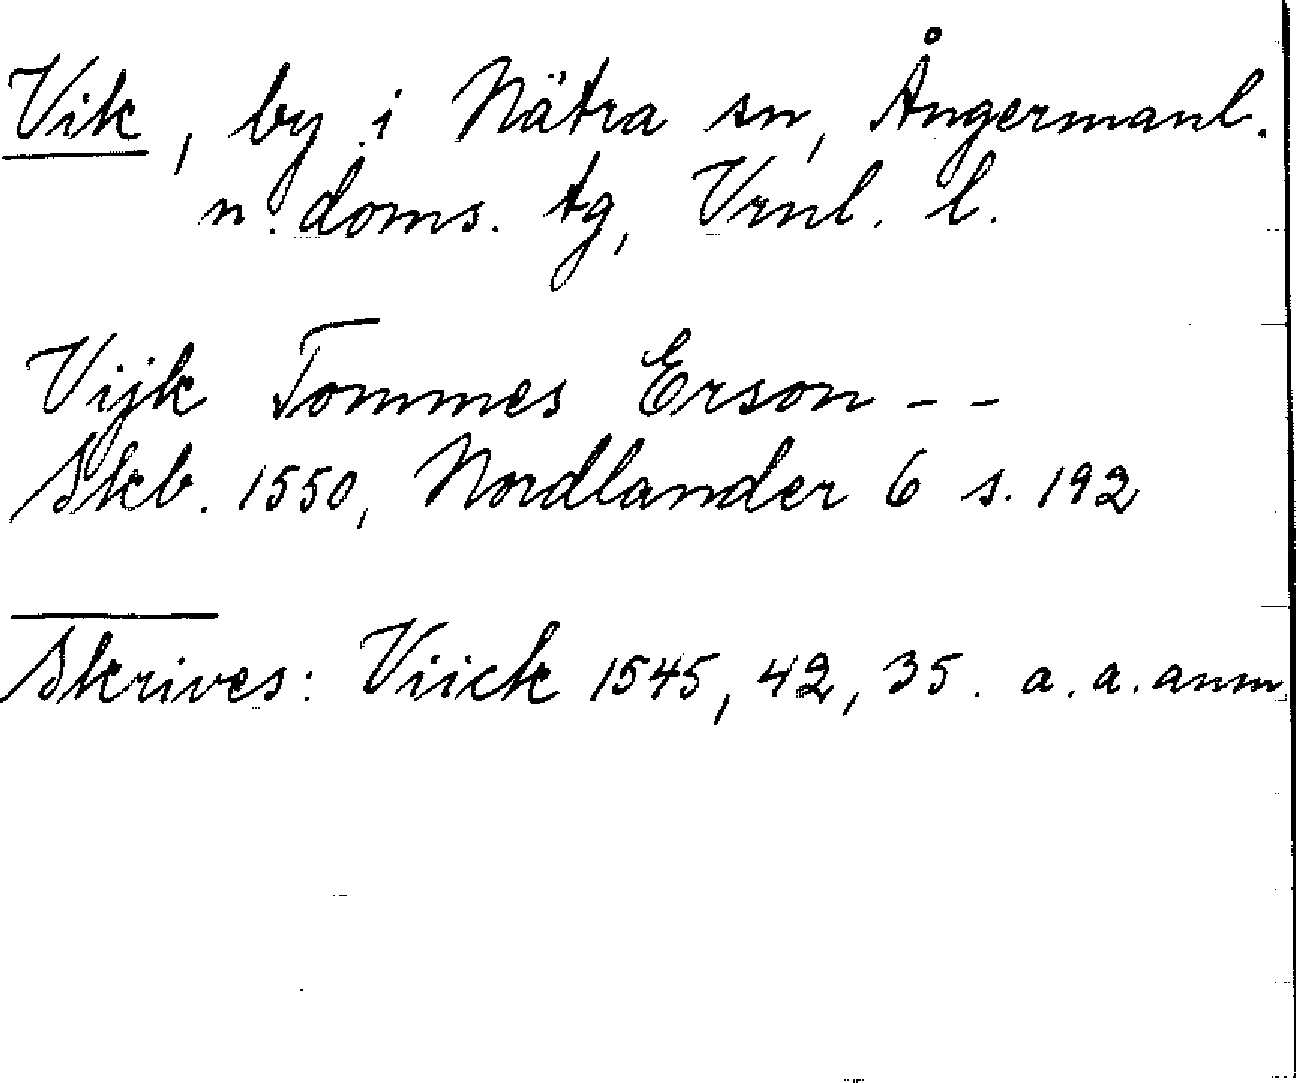 Vik, by i Nätra sn, Ångermanl.
n. doms. tg, Vrnl. l.
Vijk Tommes Erson - -
Skb. 1550, Nordlander 6 s. 192
Skrives: Viick 1545, 42, 35. a. a. anm.